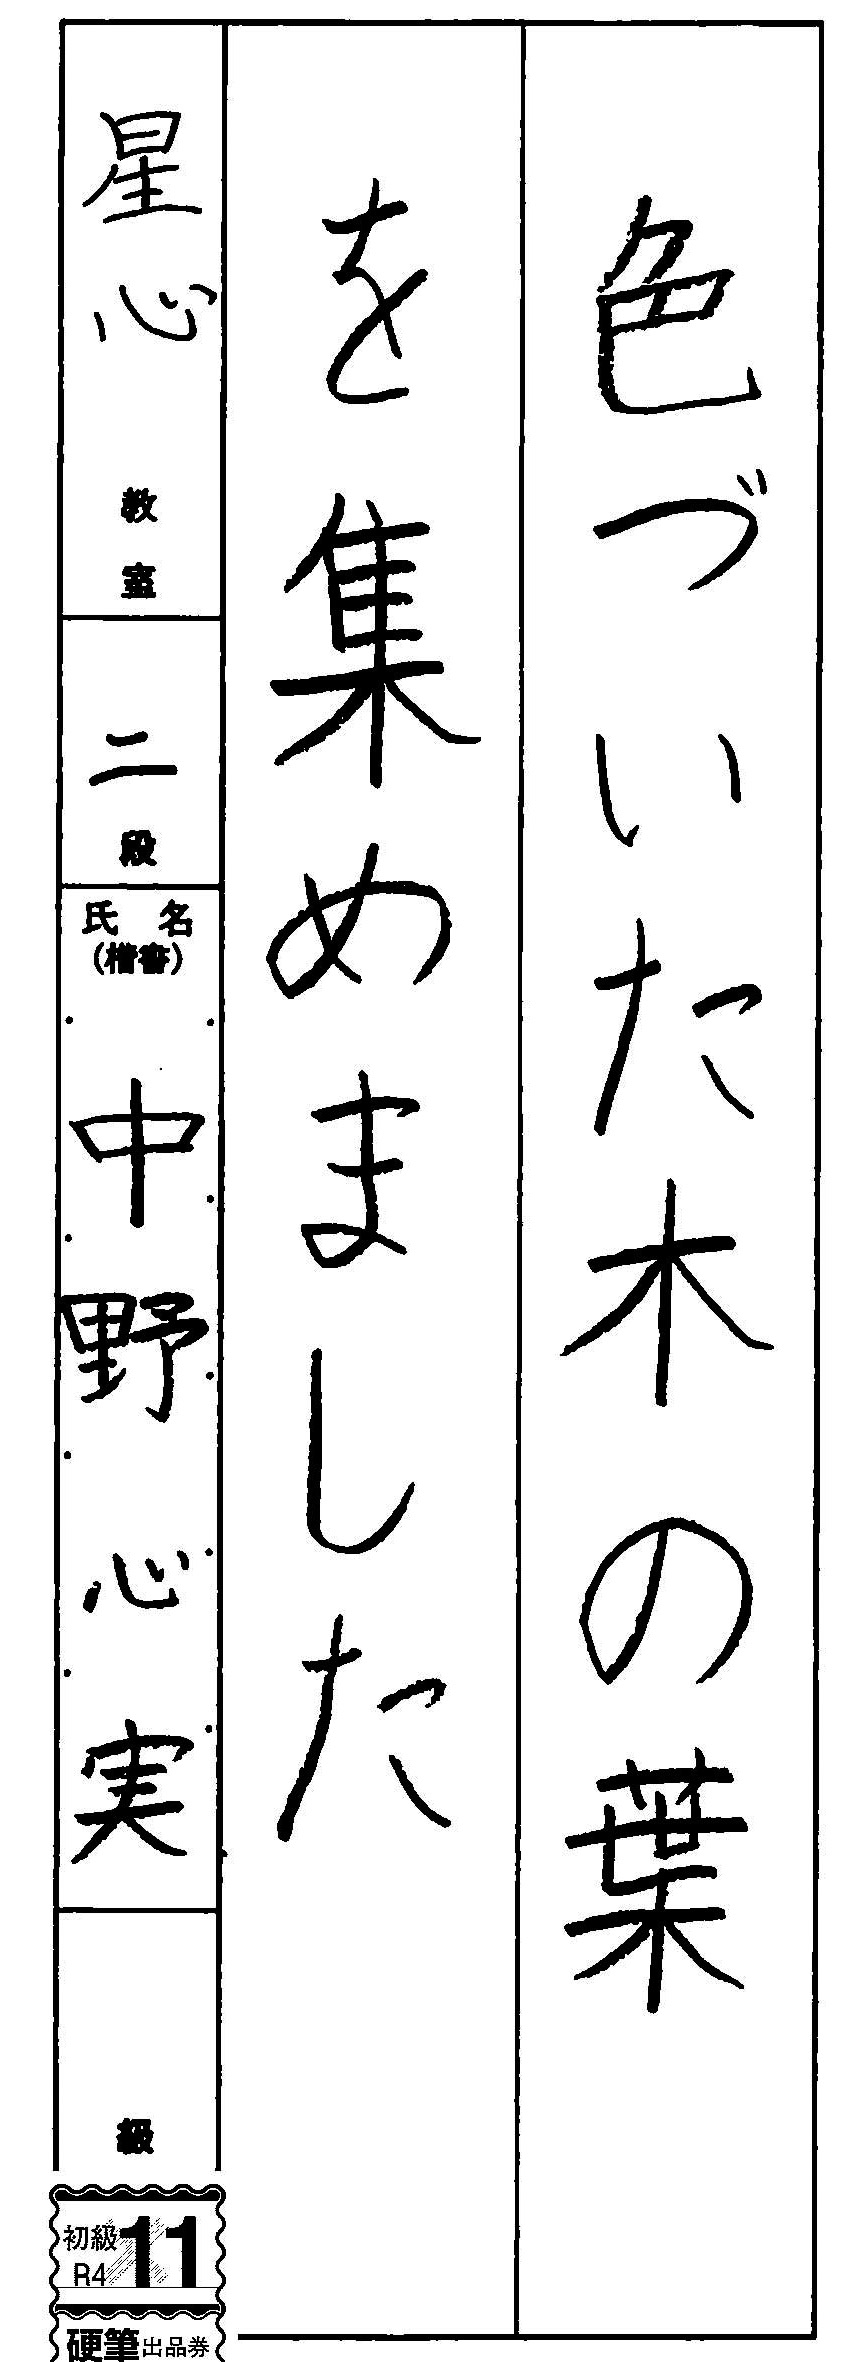 色づいた木の葉
を集めました
星心 教室
二 段
氏名
(楷書)
中野心実
級
初級
R4 11
硬筆出品券